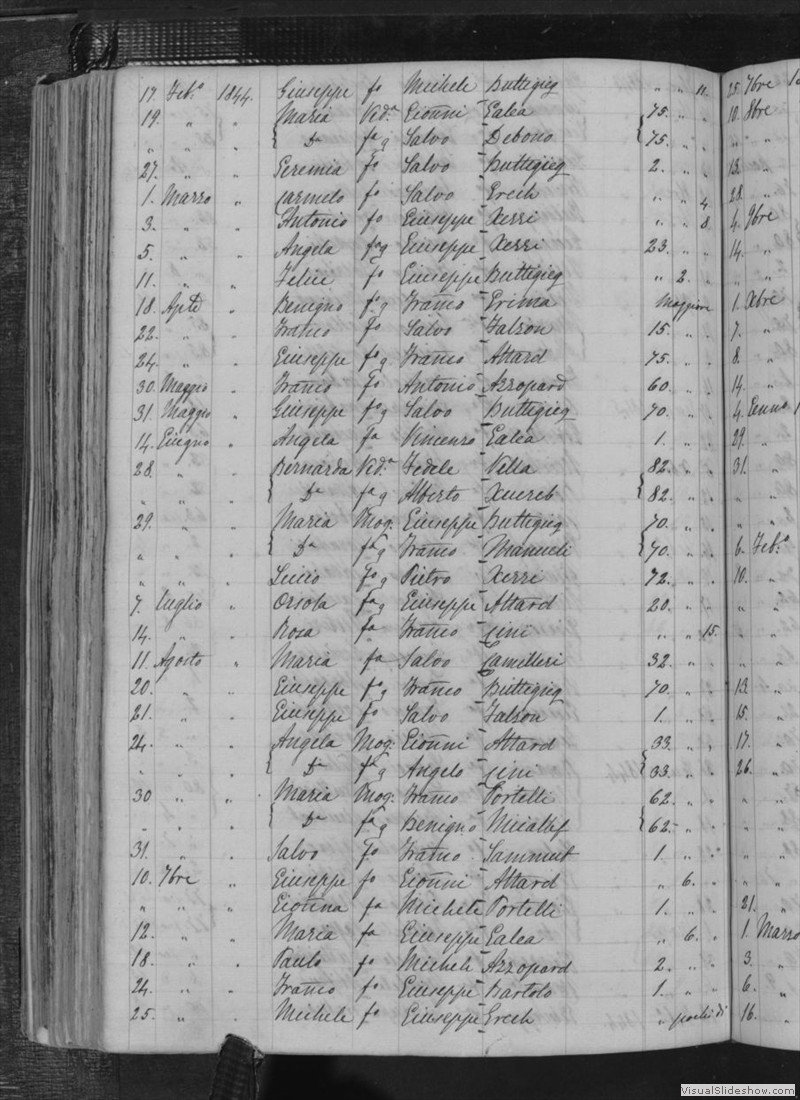 17. Feb.o 1844. Giuseppe fo Michele Buttigieg " " 11. 25. 7bre
19. " " Maria Ved.a Gionni Galea 75. " . 10. 8bre
" " " Da fa g Salvo Debono 75. " . " "
27. " " Geremia fo Salvo Buttigieg 2. " . 13. "
1. Marzo " Carmelo fo Salvo Grech " " 4. 28. "
3. " " Antonio fo Giuseppe Xerri " " 8. 4. 9bre
5. " " Angela fa g Giuseppe Xerri 23. " . 14. "
11. " " Felice fo Giuseppe Buttigieg " 2. . " "
18. Aple " Benigno fo g Franco Grima Maggiore 1. Xbre
22. " " Franco fo Salvo Falzon 15. " . 7. "
24. " " Giuseppe fo g Franco Attard 75. " . 8. "
30. Maggio " Franco fo Antonio Azzopard 60. " . 14. "
31. Maggio " Giuseppe fo g Salvo Buttigieg 70. " . 4. Genno
14. Giugno " Angela fa Vincenzo Galea 1. " . 29. "
28. " . Bernarda Ved.a Fedele Vella 82. " . 31. "
" " . Da fa g Alberto Xuereb 82. " . " "
29. " " Maria Mog. Giuseppe Buttigieg 70. " . " "
" " " Da fa g Franco Manueli 70. " . 6. Feb.o
" " " Lucio fo g Pietro Xerri 72. " . 10. "
7. Luglio " Orsola fa g Giuseppe Attard 20. " . " "
14. " " Rosa fa Franco Cini " " 15. " "
11. Agosto . Maria fa Salvo Camilleri 32. " . " "
20. " " Giuseppe fo g Franco Buttigieg 70. " . 13. "
21. " . Giuseppe fo Salvo Falzon 1. " . 15. "
24. " . Angela Mog. Gionni Attard 33. " . 17. "
" " . Da fa g Angelo Cini 33. " . 26. "
30 " " Maria Mog. Franco Portelli 62. " . " "
" " . Da fa g Benigno Micallef 62. " . " "
31. " . Salvo fo Franco Sammut 1. " . " "
10. 7bre " Giuseppe fo Gionni Attard " 6. . " "
" " " Gionna fa Michele Portelli 1. " . 21. "
12. " " Maria fa Giuseppe Galea " 6. . 1. Marzo
18. " . Paulo fo Michele Azzopard 2. " . 3. "
24. " . Franco fo Giuseppe Bartolo 1. " . 6. "
25. " . Michele fo Giuseppe Grech " pochi di 16. "
VisualSlideshow.com